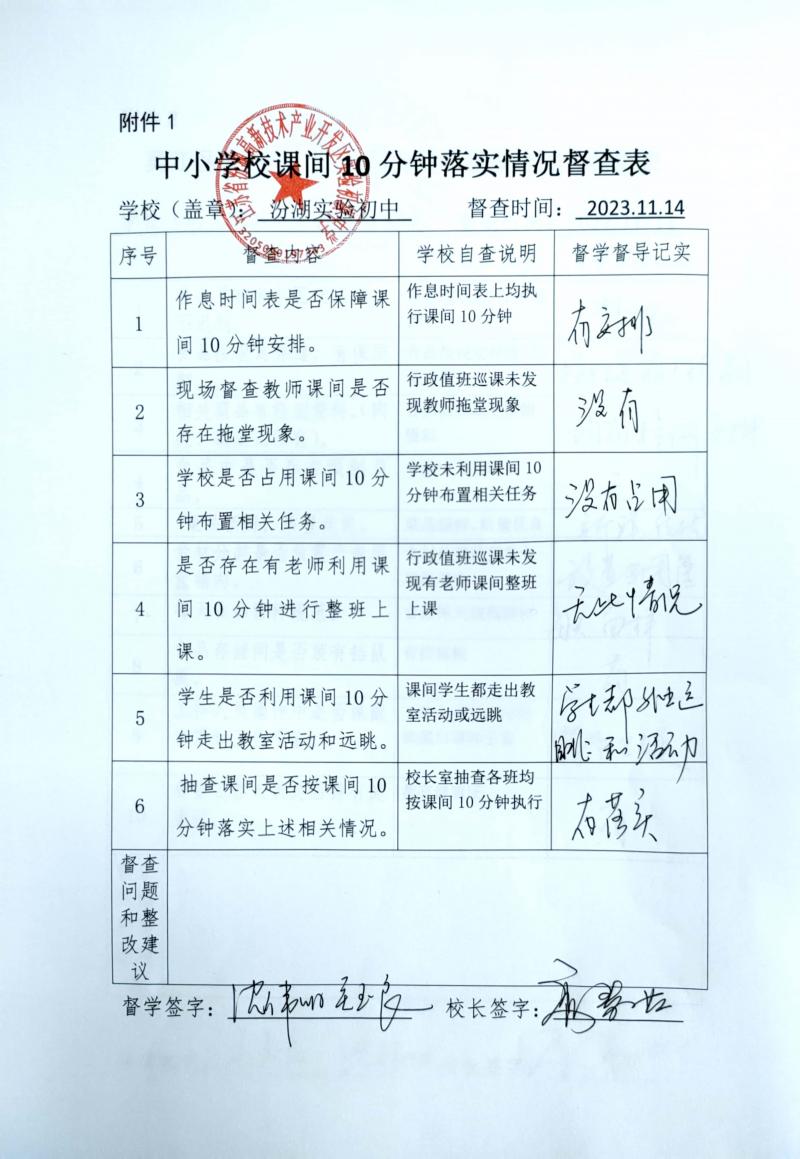 附件 1
中小学校课间 10 分钟落实情况督查表
学校（盖章）： 汾湖实验初中 督查时间： 2023.11.14
序号 督查内容 学校自查说明 督学督导记实
1
作息时间表是否保障课
间 10 分钟安排。
作息时间表上均执
行课间 10 分钟
有安排
2
现场督查教师课间是否
存在拖堂现象。
行政值班巡课未发
现教师拖堂现象
没有
3
学校是否占用课间 10 分
钟布置相关任务。
学校未利用课间 10
分钟布置相关任务
没有占用
4
是否存在有老师利用课
间 10 分钟进行整班上
课。
行政值班巡课未发
现有老师课间整班
上课
无此情况
5
学生是否利用课间 10 分
钟走出教室活动和远眺。
课间学生都走出教
室活动或远眺
学生都外出远
眺和活动
6
抽查课间是否按课间 10
分钟落实上述相关情况。
校长室抽查各班均
按课间 10 分钟执行
有落实
督查
问题
和整
改建
议
督学签字： 校长签字：